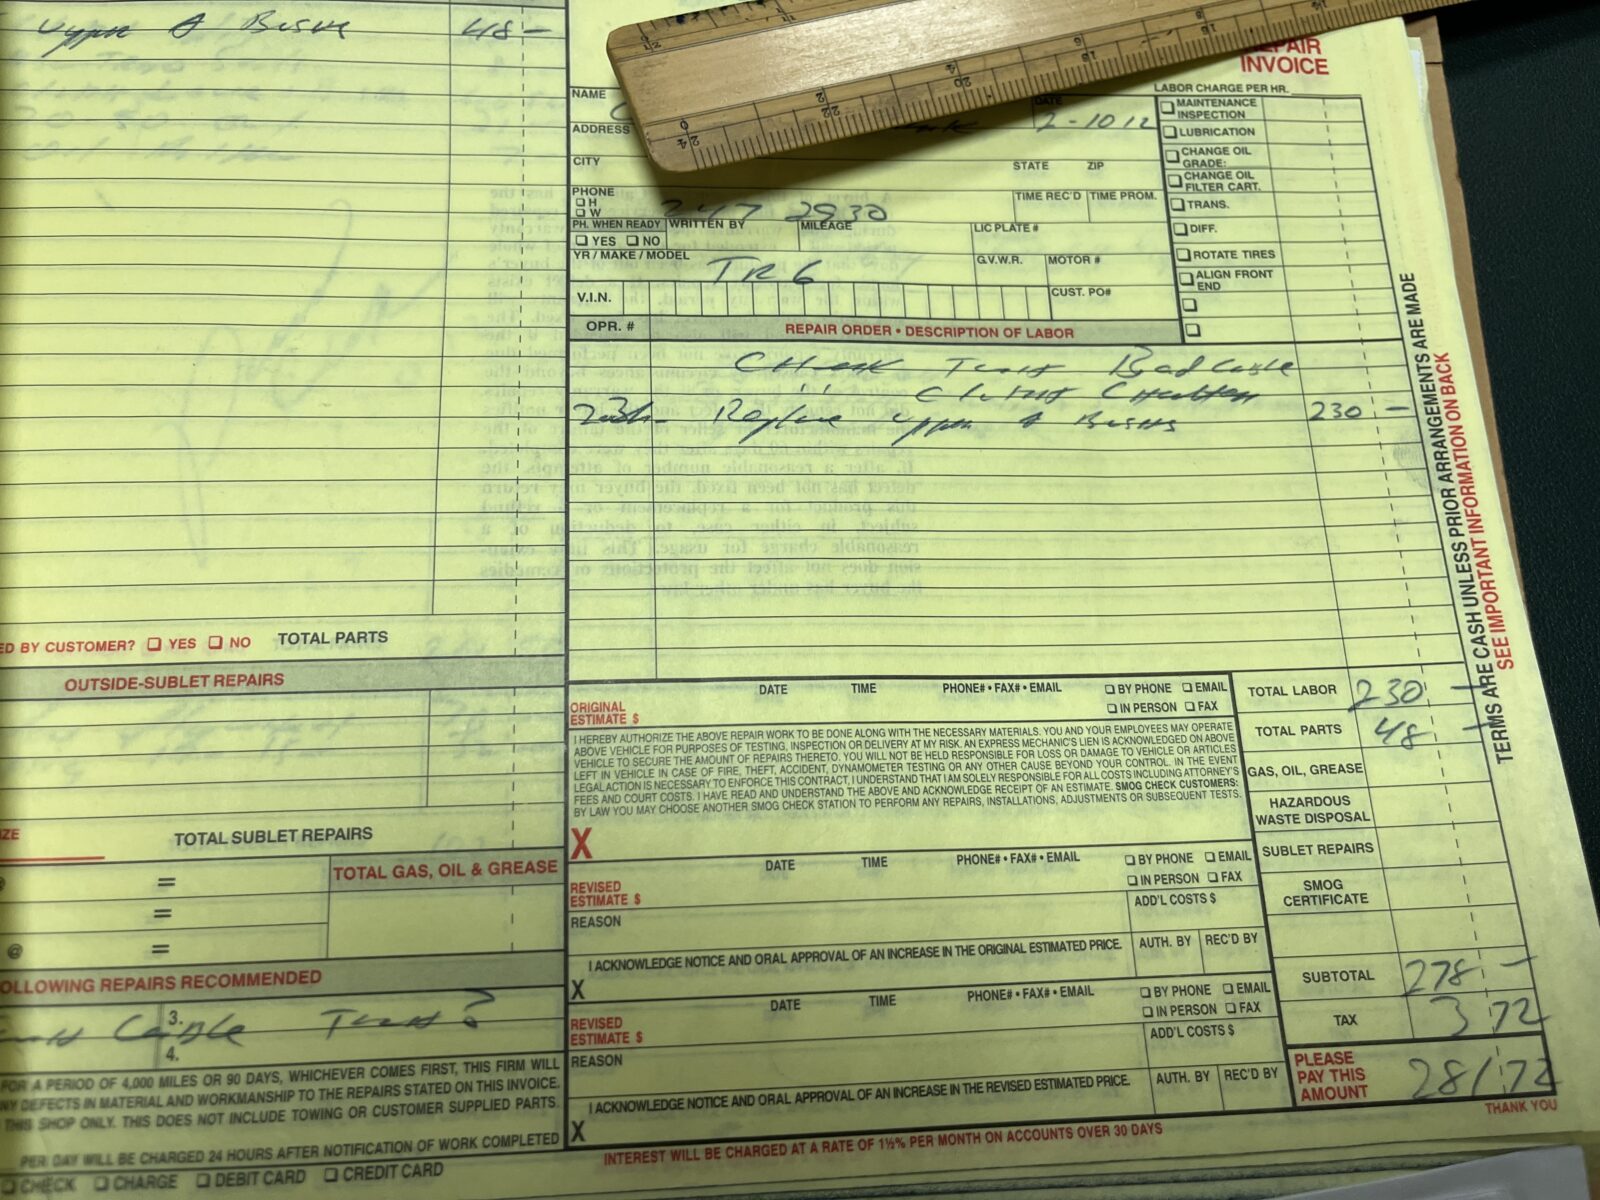 upper A Bushs 48 -
ED BY CUSTOMER? YES NO TOTAL PARTS
OUTSIDE-SUBLET REPAIRS
ZE
TOTAL SUBLET REPAIRS
@ = TOTAL GAS, OIL & GREASE
=
@ =
OLLOWING REPAIRS RECOMMENDED
3.
4.
FOR A PERIOD OF 4,000 MILES OR 90 DAYS, WHICHEVER COMES FIRST, THIS FIRM WILL
NY DEFECTS IN MATERIAL AND WORKMANSHIP TO THE REPAIRS STATED ON THIS INVOICE.
THIS SHOP ONLY. THIS DOES NOT INCLUDE TOWING OR CUSTOMER SUPPLIED PARTS.
PER DAY WILL BE CHARGED 24 HOURS AFTER NOTIFICATION OF WORK COMPLETED
CHECK CHARGE DEBIT CARD CREDIT CARD
REPAIR
INVOICE
NAME
DATE 2-10 12
ADDRESS
CITY STATE ZIP
PHONE
H
W 247 2930
TIME REC'D TIME PROM.
PH. WHEN READY WRITTEN BY MILEAGE LIC PLATE #
YES NO
YR / MAKE / MODEL TR6 G.V.W.R. MOTOR #
V.I.N. CUST. PO#
LABOR CHARGE PER HR.
MAINTENANCE
INSPECTION
LUBRICATION
CHANGE OIL
GRADE:
CHANGE OIL
FILTER CART.
TRANS.
DIFF.
ROTATE TIRES
ALIGN FRONT
END
OPR. # REPAIR ORDER • DESCRIPTION OF LABOR
Check Bad
" "
Replace upper A Bushs 230 -
DATE TIME PHONE# • FAX# • EMAIL BY PHONE EMAIL
ORIGINAL IN PERSON FAX
ESTIMATE $
I HEREBY AUTHORIZE THE ABOVE REPAIR WORK TO BE DONE ALONG WITH THE NECESSARY MATERIALS. YOU AND YOUR EMPLOYEES MAY OPERATE
ABOVE VEHICLE FOR PURPOSES OF TESTING, INSPECTION OR DELIVERY AT MY RISK. AN EXPRESS MECHANIC'S LIEN IS ACKNOWLEDGED ON ABOVE
VEHICLE TO SECURE THE AMOUNT OF REPAIRS THERETO. YOU WILL NOT BE HELD RESPONSIBLE FOR LOSS OR DAMAGE TO VEHICLE OR ARTICLES
LEFT IN VEHICLE IN CASE OF FIRE, THEFT, ACCIDENT, DYNAMOMETER TESTING OR ANY OTHER CAUSE BEYOND YOUR CONTROL. IN THE EVENT
LEGAL ACTION IS NECESSARY TO ENFORCE THIS CONTRACT, I UNDERSTAND THAT I AM SOLELY RESPONSIBLE FOR ALL COSTS INCLUDING ATTORNEY'S
FEES AND COURT COSTS. I HAVE READ AND UNDERSTAND THE ABOVE AND ACKNOWLEDGE RECEIPT OF AN ESTIMATE. SMOG CHECK CUSTOMERS:
BY LAW YOU MAY CHOOSE ANOTHER SMOG CHECK STATION TO PERFORM ANY REPAIRS, INSTALLATIONS, ADJUSTMENTS OR SUBSEQUENT TESTS.
X
DATE TIME PHONE# • FAX# • EMAIL BY PHONE EMAIL
REVISED IN PERSON FAX
ESTIMATE $ ADD'L COSTS $
REASON
I ACKNOWLEDGE NOTICE AND ORAL APPROVAL OF AN INCREASE IN THE ORIGINAL ESTIMATED PRICE. AUTH. BY REC'D BY
X
DATE TIME PHONE# • FAX# • EMAIL BY PHONE EMAIL
REVISED IN PERSON FAX
ESTIMATE $ ADD'L COSTS $
REASON
I ACKNOWLEDGE NOTICE AND ORAL APPROVAL OF AN INCREASE IN THE REVISED ESTIMATED PRICE. AUTH. BY REC'D BY
X
INTEREST WILL BE CHARGED AT A RATE OF 1½% PER MONTH ON ACCOUNTS OVER 30 DAYS
TOTAL LABOR 230 -
TOTAL PARTS 48 -
GAS, OIL, GREASE
HAZARDOUS
WASTE DISPOSAL
SUBLET REPAIRS
SMOG
CERTIFICATE
SUBTOTAL 278 -
TAX 3 72
PLEASE
PAY THIS
AMOUNT 281 72
THANK YOU
TERMS ARE CASH UNLESS PRIOR ARRANGEMENTS ARE MADE
SEE IMPORTANT INFORMATION ON BACK